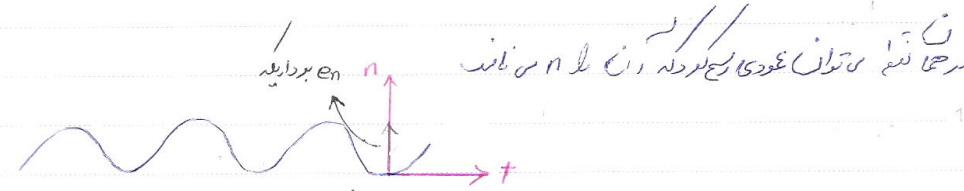 در همان نقطه می توان عمودی رسم کرد که آن را n می نامند
بردار یکه en
n
t